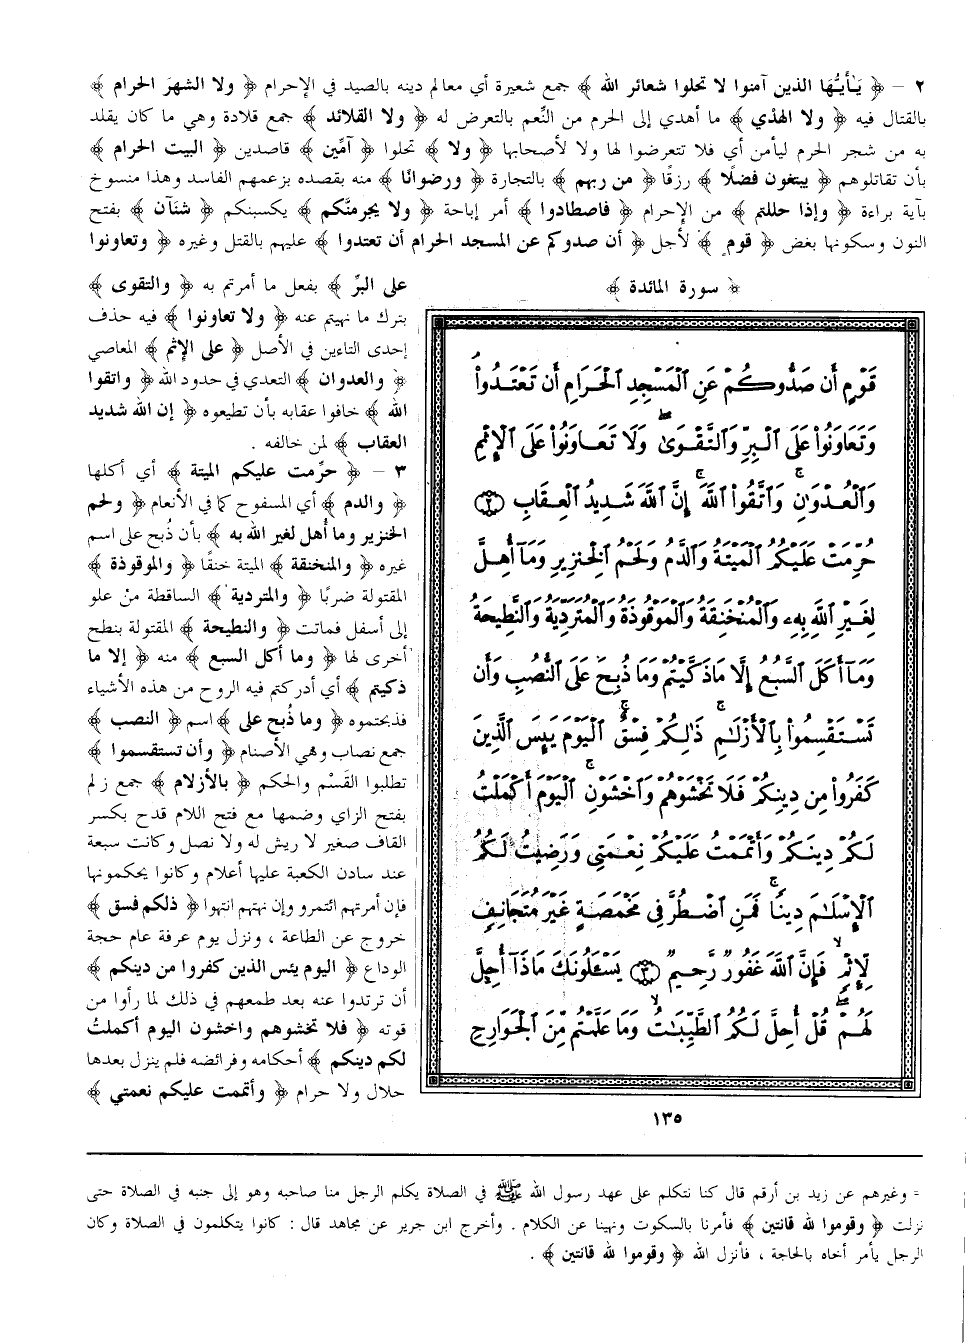 ٢ – ﴿ يَٰأيُّها الذين آمنوا لا تحلوا شعائر الله ﴾ جمع شعيرة أي معالم دينه بالصيد في الإحرام ﴿ ولا الشهرَ الحرام ﴾
بالقتال فيه ﴿ ولا الهدْي ﴾ ما أهدي إلى الحرم من النِّعم بالتعرض له ﴿ ولا القلائد ﴾ جمع قلادة وهي ما كان يقلد
به من شجر الحرم ليأمن أي فلا تتعرضوا لها ولا لأصحابها ﴿ ولا ﴾ تحلوا ﴿ آمِّين ﴾ قاصدين ﴿ البيت الحرام ﴾
بأن تقاتلوهم ﴿ يبتغون فضلًا ﴾ رزقًا ﴿ من ربهم ﴾ بالتجارة ﴿ ورضوانًا ﴾ منه بقصده بزعمهم الفاسد وهذا منسوخ
بآية براءة ﴿ وإذا حللتم ﴾ من الإحرام ﴿ فاصطادوا ﴾ أمر إباحة ﴿ ولا يجرمنَّكم ﴾ يكسبنكم ﴿ شنَآن ﴾ بفتح
النون وسكونها بغض ﴿ قوم ﴾ لأجل ﴿ أن صدوكم عن المسجد الحرام أن تعتدوا ﴾ عليهم بالقتل وغيره ﴿ وتعاونوا
﴿ سورة المائدة ﴾
قَوْمٍ أَن صَدُّوكُمْ عَنِ الْمَسْجِدِ الْحَرَامِ أَن تَعْتَدُواْ
وَتَعَاوَنُواْ عَلَى الْبِرِّ وَالتَّقْوَىٰ وَلَا تَعَاوَنُواْ عَلَى الْإِثْمِ
وَالْعُدْوَٰنِ وَاتَّقُواْ اللَّهَ إِنَّ اللَّهَ شَدِيدُ الْعِقَابِ ٢
حُرِّمَتْ عَلَيْكُمُ الْمَيْتَةُ وَالدَّمُ وَلَحْمُ الْخِنزِيرِ وَمَآ أُهِلَّ
لِغَيْرِ اللَّهِ بِهِۦ وَالْمُنْخَنِقَةُ وَالْمَوْقُوذَةُ وَالْمُتَرَدِّيَةُ وَالنَّطِيحَةُ
وَمَآ أَكَلَ السَّبُعُ إِلَّا مَا ذَكَّيْتُمْ وَمَا ذُبِحَ عَلَى النُّصُبِ وَأَن
تَسْتَقْسِمُواْ بِالْأَزْلَٰمِ ذَٰلِكُمْ فِسْقٌ الْيَوْمَ يَئِسَ الَّذِينَ
كَفَرُواْ مِن دِينِكُمْ فَلَا تَخْشَوْهُمْ وَاخْشَوْنِ الْيَوْمَ أَكْمَلْتُ
لَكُمْ دِينَكُمْ وَأَتْمَمْتُ عَلَيْكُمْ نِعْمَتِي وَرَضِيتُ لَكُمُ
الْإِسْلَٰمَ دِينًا فَمَنِ اضْطُرَّ فِي مَخْمَصَةٍ غَيْرَ مُتَجَانِفٍ
لِّإِثْمٍ فَإِنَّ اللَّهَ غَفُورٌ رَّحِيمٌ ٣ يَسْـَٔلُونَكَ مَاذَآ أُحِلَّ
لَهُمْ قُلْ أُحِلَّ لَكُمُ الطَّيِّبَٰتُ وَمَا عَلَّمْتُم مِّنَ الْجَوَارِحِ
على البرِّ ﴾ بفعل ما أمرتم به ﴿ والتقوى ﴾
بترك ما نهيتم عنه ﴿ ولا تعاونوا ﴾ فيه حذف
إحدى التاءين في الأصل ﴿ على الإثم ﴾ المعاصي
﴿ والعدوان ﴾ التعدي في حدود الله ﴿ واتقوا
الله ﴾ خافوا عقابه بأن تطيعوه ﴿ إن الله شديد
العقاب ﴾ لمن خالفه .
٣ – ﴿ حرِّمت عليكم الميتة ﴾ أي أكلها
﴿ والدم ﴾ أي المسفوح كما في الأنعام ﴿ ولحم
الخنزير وما أُهل لغير الله به ﴾ بأن ذُبح على اسم
غيره ﴿ والمنخنقة ﴾ الميتة خنقًا ﴿ والموقوذة ﴾
المقتولة ضربًا ﴿ والمتردية ﴾ الساقطة من علو
إلى أسفل فماتت ﴿ والنطيحة ﴾ المقتولة بنطح
أخرى لها ﴿ وما أكل السبع ﴾ منه ﴿ إلا ما
ذكيتم ﴾ أي أدركتم فيه الروح من هذه الأشياء
فذبحتموه ﴿ وما ذُبح على ﴾ اسم ﴿ النصب ﴾
جمع نصاب وهي الأصنام ﴿ وأن تستقسموا ﴾
تطلبوا القَسْم والحكم ﴿ بالأزلام ﴾ جمع زلم
بفتح الزاي وضمها مع فتح اللام قدح بكسر
القاف صغير لا ريش له ولا نصل وكانت سبعة
عند سادن الكعبة عليها أعلام وكانوا يحكمونها
فإن أمرتهم ائتمرو وإن نهتهم انتهوا ﴿ ذلكم فسق ﴾
خروج عن الطاعة ، ونزل يوم عرفة عام حجة
الوداع ﴿ اليوم يئس الذين كفروا من دينكم ﴾
أن ترتدوا عنه بعد طمعهم في ذلك لما رأوا من
قوته ﴿ فلا تخشوهم واخشون اليوم أكملتُ
لكم دينكم ﴾ أحكامه وفرائضه فلم ينزل بعدها
حلال ولا حرام ﴿ وأتممت عليكم نعمتي ﴾
١٣٥
= وغيرهم عن زيد بن أرقم قال كنا نتكلم على عهد رسول الله ﷺ في الصلاة يكلم الرجل منا صاحبه وهو إلى جنبه في الصلاة حتى
نزلت ﴿ وقوموا لله قانتين ﴾ فأمرنا بالسكوت ونهينا عن الكلام . وأخرج ابن جرير عن مجاهد قال : كانوا يتكلمون في الصلاة وكان
الرجل يأمر أخاه بالحاجة ، فأنزل الله ﴿ وقوموا لله قانتين ﴾ .